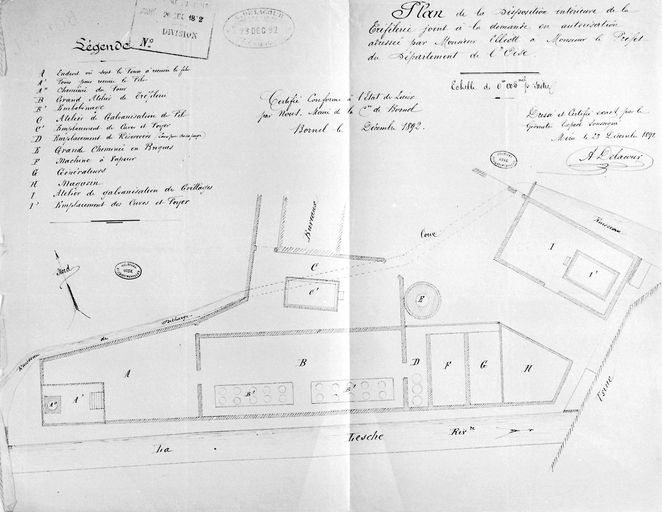 Plan de la Disposition intérieure de la
Tréfilerie joint à la demande en autorisation
adressée par Monsieur Elliott à Monsieur le Préfet
du Département de l'Oise
Légende
No
20 DEC 1892
DIVISION
A. DELACOUR
23 DEC. 92
A Endroit où est le Four à recuire le fil
A' Four pour recuire le Fil
A" Cheminée du Four
B Grand Atelier de Tréfilerie
B' Embobinage
C Atelier de Galvanisation de Fil
C' Emplacement de Cuves et Foyer
D Emplacement de Réservoir
E Grande Cheminée en Briques
F Machine à Vapeur
G Générateurs
H Magasin
I Atelier de galvanisation de Grillages
I' Emplacement des Cuves et Foyer
Certifié Conforme à l'Etat de Lieux
par Nous, Maire de la Cne de Bornel
Bornel le Décembre 1892.
Echelle de
Dressé et Certifié exact par le
Géomètre Expert soussigné
Méru le 23 Décembre 1892
A Delacour
Nord
Bureaux
Cour
C
C'
E
I
I'
Ruisseau
Ruisseau de décharge
A
A'
A"
B
B'
B'
D
F
G
H
Usine
La Gesche Rivre